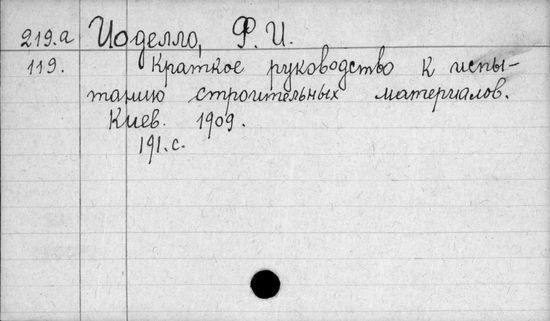 219.а Иоделло, Ф. И.
119. Краткое руководство к испы-
танию строительных материалов.
Киев. 1909.
191.с.